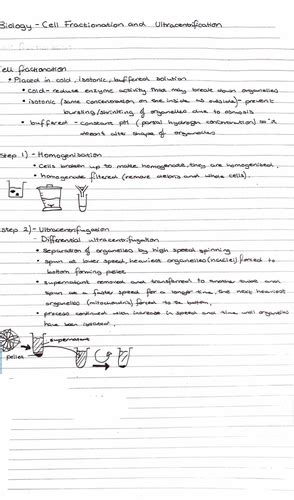 Biology - Cell Fractionation and Ultracentrification
Cell fractionation
• Placed in cold, isotonic, buffered solution
• cold - reduce enzyme activity that may break down organelles
• isotonic (same concentration on the inside to outside) - prevent
bursting/shrinking of organelles due to osmosis
• buffered - constant pH (partial hydrogen concentration) so it
doesn't alter shape of organelles
Step 1) - Homogenisation
• Cells broken up to make homogenate, they are homogenised.
• homogenate filtered (remove debris and whole cells).
Step 2) - Ultracentrifugation
Differential ultracentrifugation
• Separation of organelles by high speed spinning
• spun at lower speed, heaviest organelles (nuclei) forced to
bottom forming pellet
• supernatant removed and transferred to another tube and
spun at a faster speed for a longer time, the next heaviest
organelles (mitochondria) forced to the bottom,
• process continued with increase in speed and time until organelles
have been isolated,
supernatant
pellet